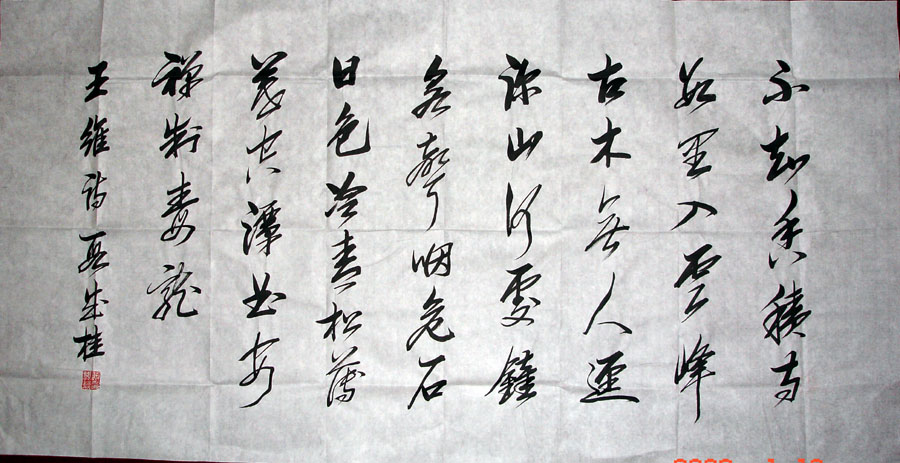 不知香積寺
数里入雲峰
古木無人逕
深山何處鐘
泉聲咽危石
日色冷青松薄
暮空潭曲安
禅制毒龍
王維詩 成桂